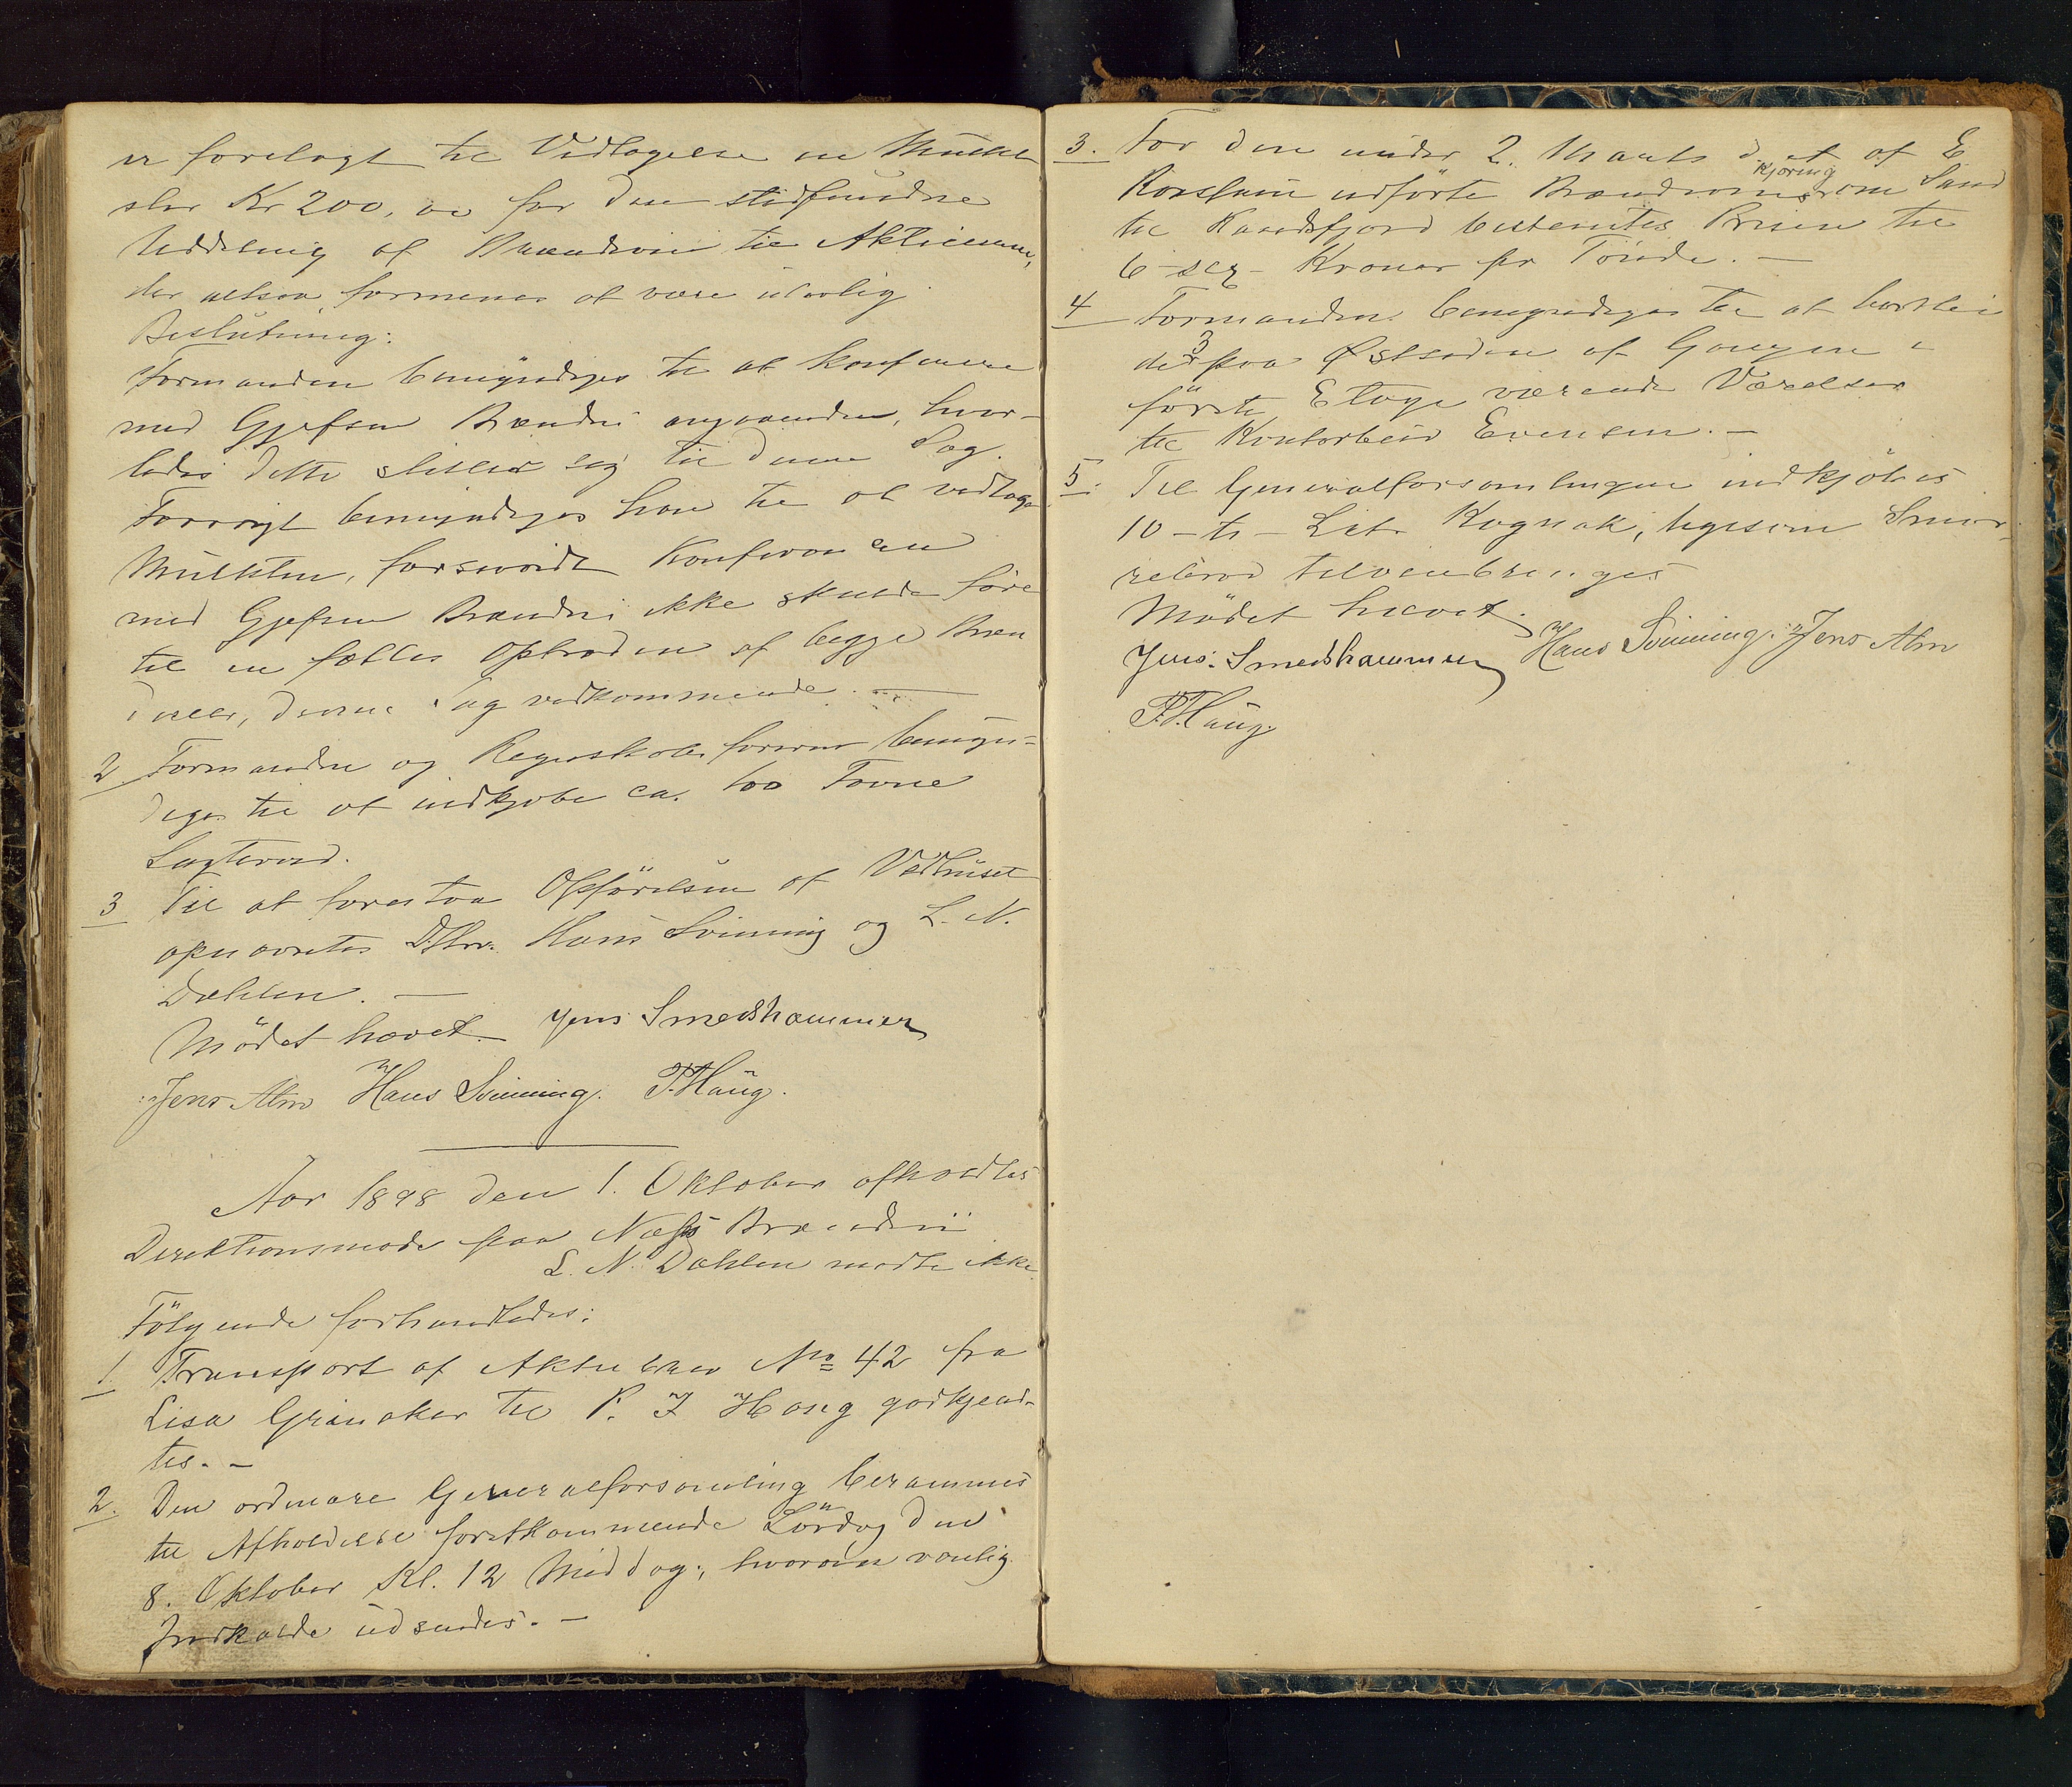 er forelagt til Vedtagelse en Mulkt
stor Kr 200,00 for den stedfundne
Uddeling af Brændevin til Aktieeierne,
der altsaa formenes at være ulovlig.
Beslutning:
Formanden bemyndiges til at konferere
med Gjefsen Brænderi angaaende, hvor-
ledes dette stiller sig til denne Sag.
Forøvrigt bemyndiges han til at vedtage
Mulkten, forsaavidt Konferencen
med Gjefsen Brænderi ikke skulde føre
til en fælles Optræden af begge Bræn
derier, denne Sag vedkommende. —
2 Formanden og Regnskabsfører bemyn-
diges til at indkjøbe ca. 100 Favne
Lagterved.
3 Til at forestaa Opførelsen af Vedhuset
opnævntes DHrr. Hans Svinning og L. N.
Dæhlen. —
Mødet hævet. Jens Smedshammer
Jens Alm Hans Svinning. P. Haug.
Aar 1898 den 1. Oktober afholdtes
Direktionsmøde paa Næss Brænderi
L. N. Dæhlen mødte ikke
Følgende forhandledes:
1. Transport af Aktiebrev No 42 fra
Lisa Grinaker til P. J Haug godkjend-
tes. —
2. Den ordinære Generalforsamling berammes
til Afholdelse førstkommende Lørdag den
8. Oktober Kl. 12 Middag, hvorom vanlig
Indkalde udsendes. —
3. For den under 2. Marts d. a. af E
Korslien udførte Brændevinskjøring om Land
til Randsfjord bestemtes Prisen til
6 - sex - Kroner pr Tønde. —
4 Formanden bemyndiges til at bortleie
de 3 paa Østsiden af Gangen i
første Etage værende Værelser
til Kontorbetj Evensen. —
5. Til Generalforsamlingen indkjøbes
10 - ti - Liter Kognak, ligesom Smør-
rebrød tilveiebringes
Mødet hævet.
Jens Smedshammer Hans Svinning. Jens Alm
P. Haug.